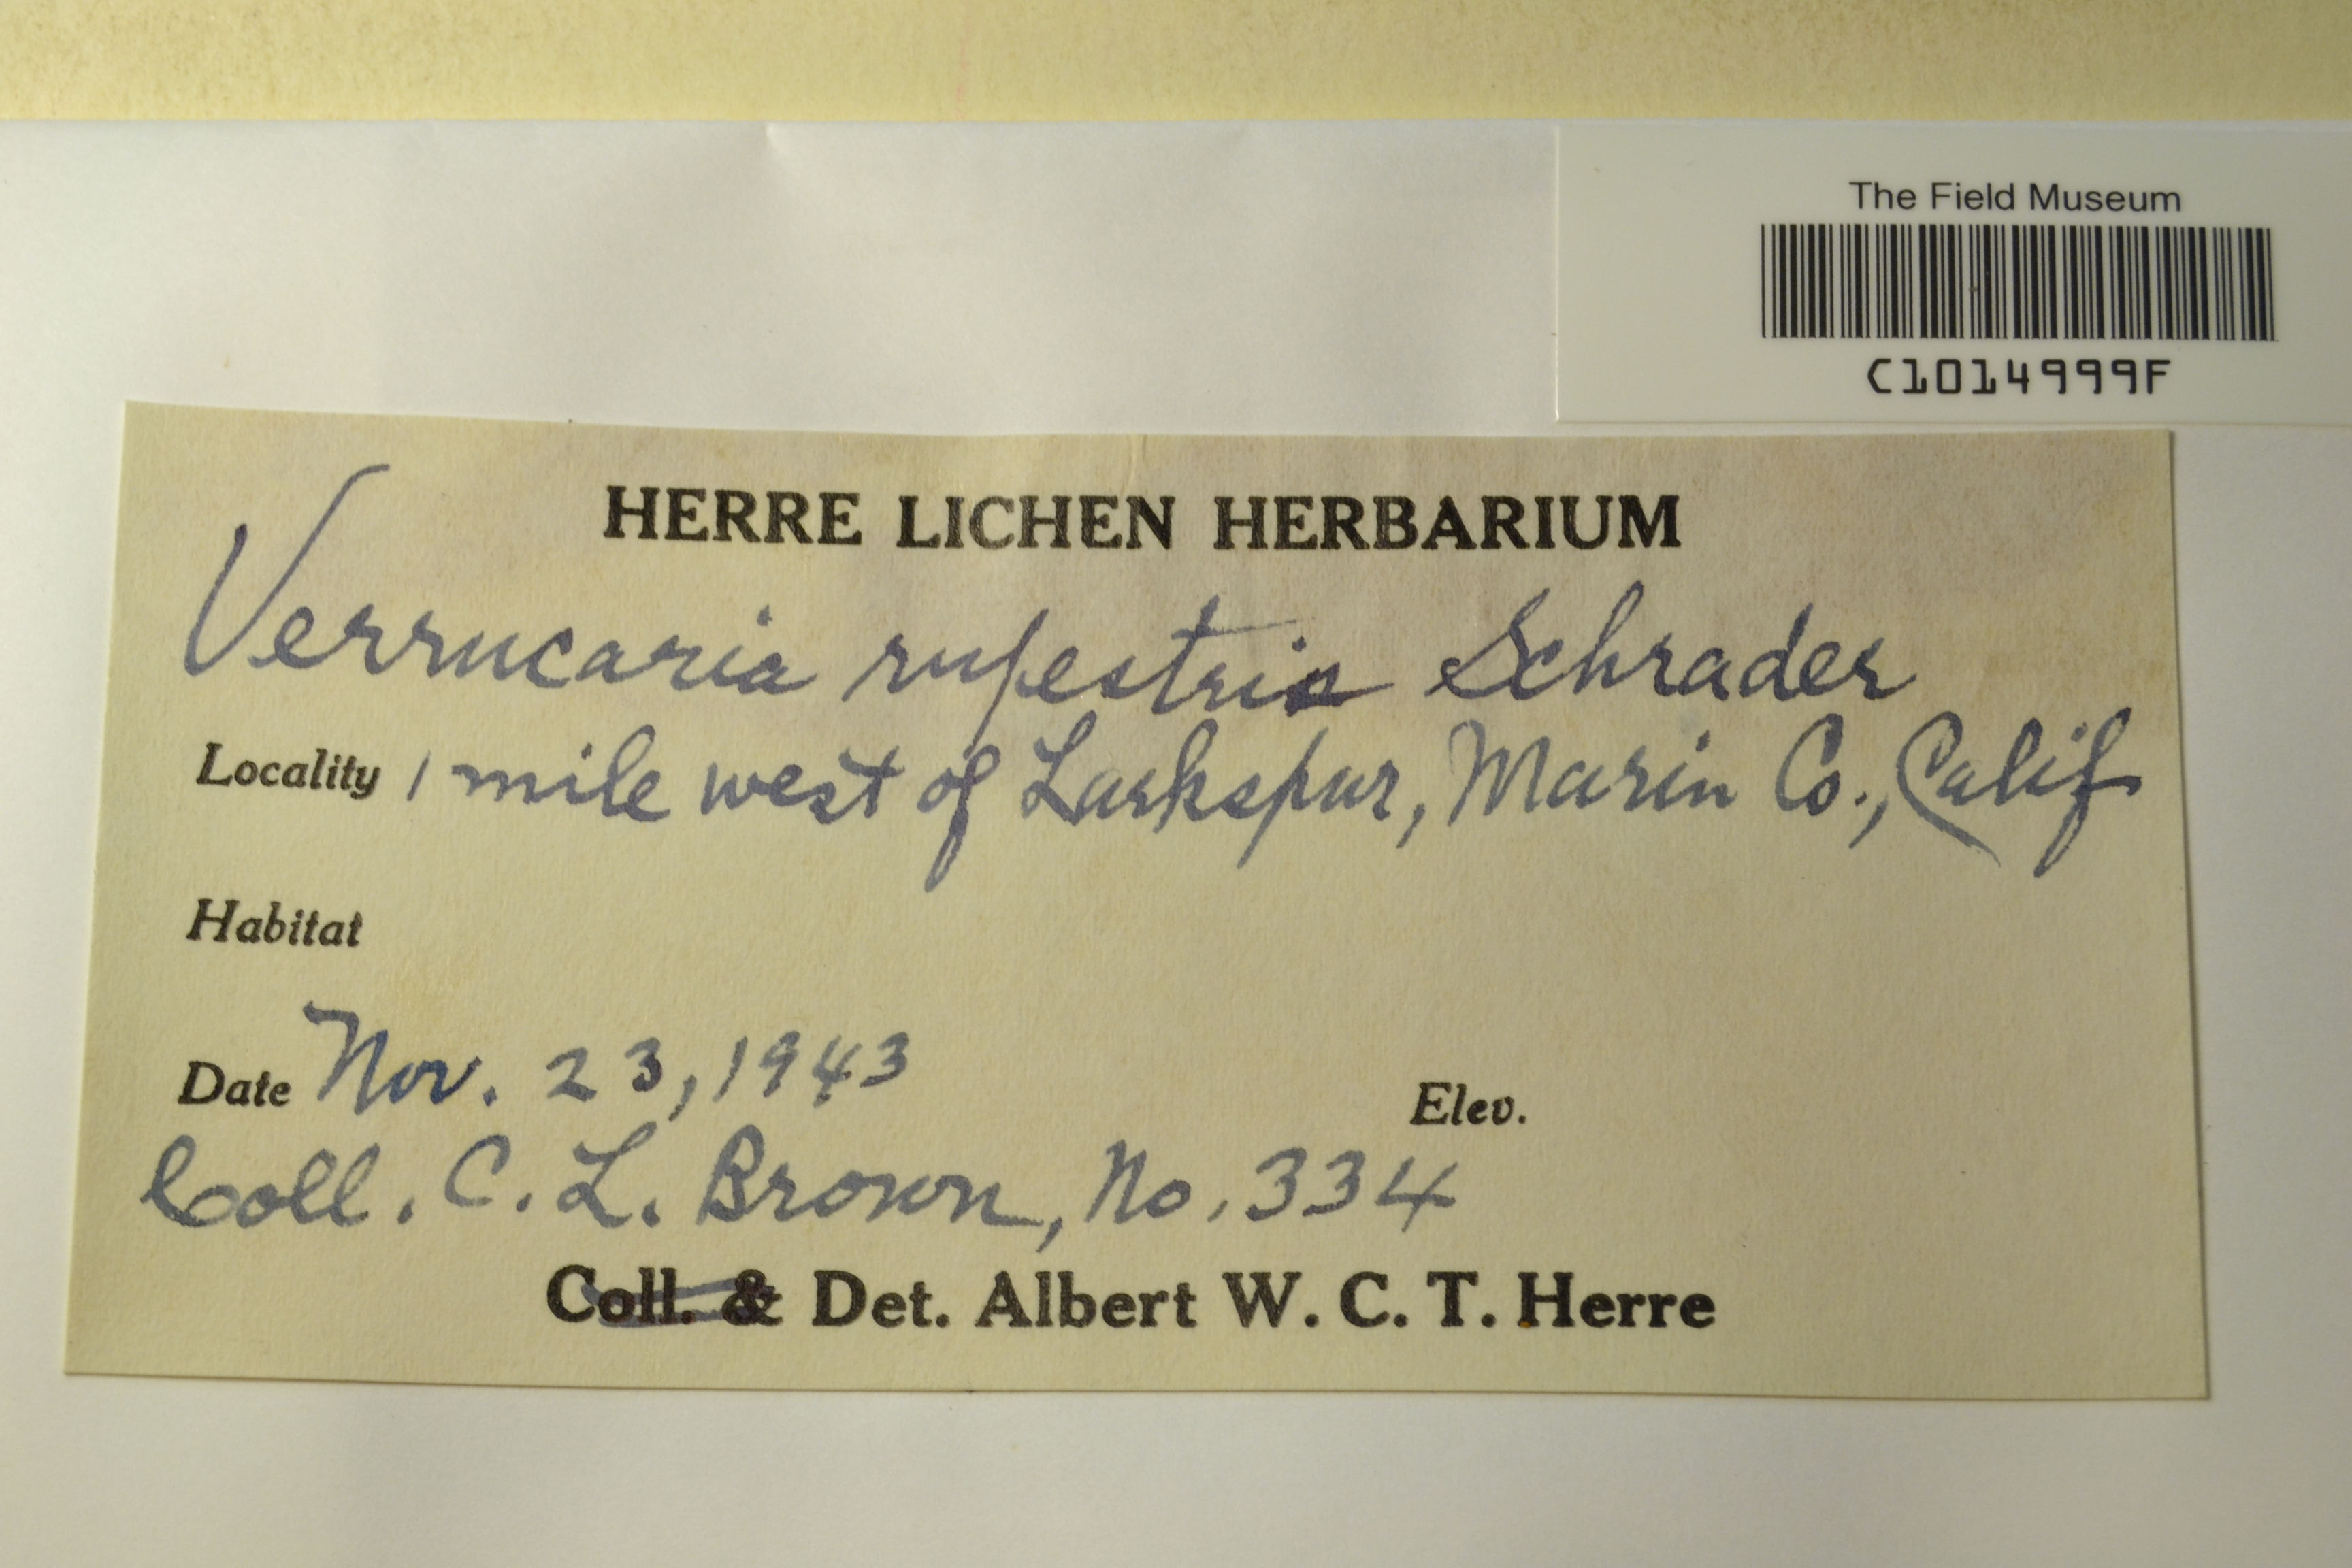 The Field Museum
C1014999F
HERRE LICHEN HERBARIUM
Verrucaria rupestris Schrader
Locality 1 mile west of Larkspur, Marin Co., Calif
Habitat
Date Nov. 23, 1943
Elev.
Coll. C. L. Brown, No. 334
Coll. & Det. Albert W. C. T. Herre